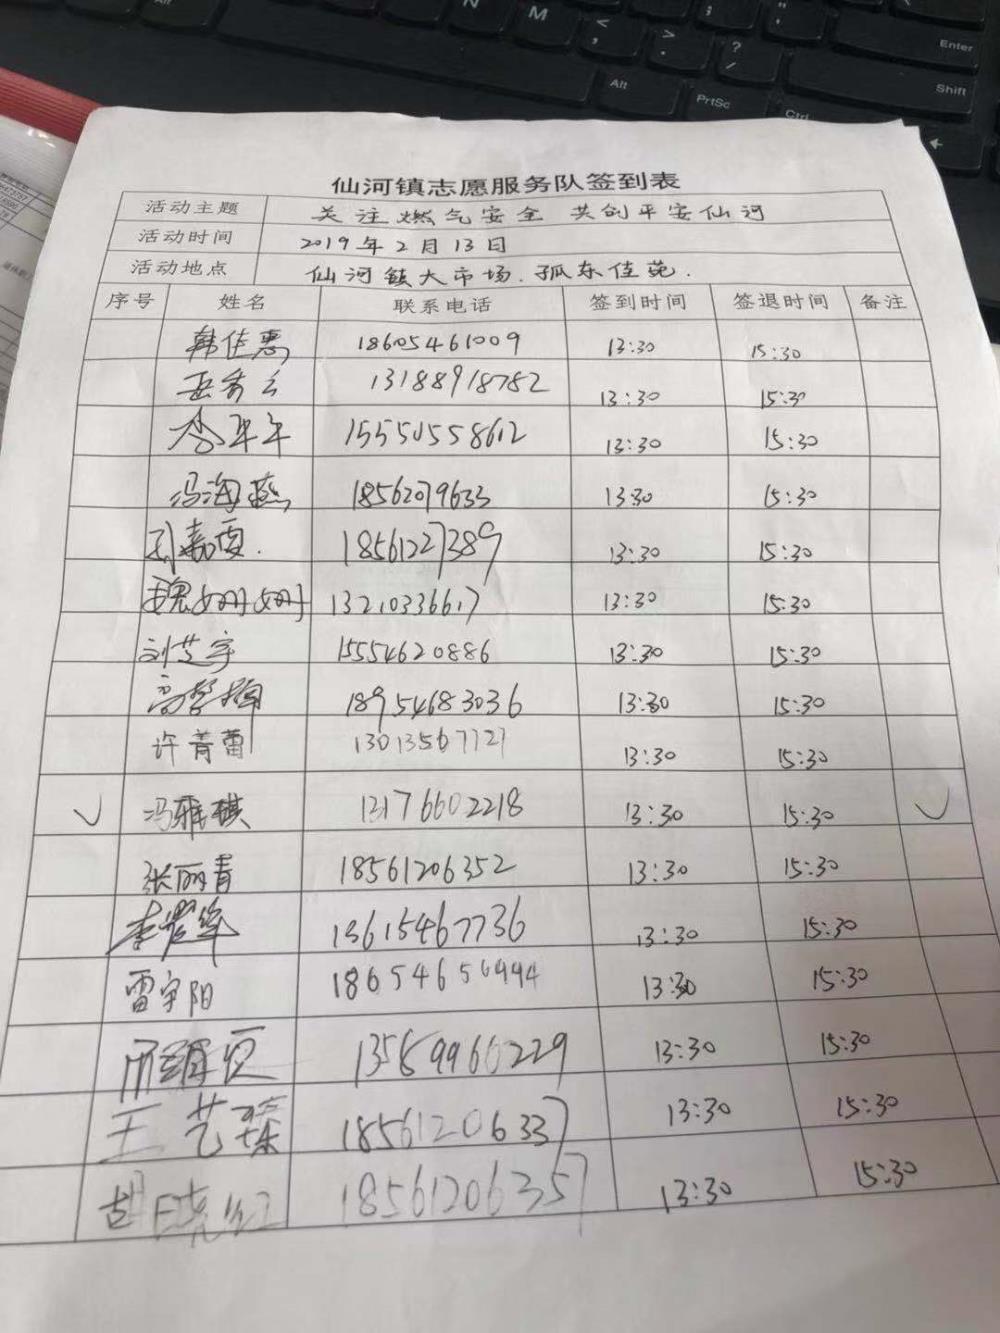 Enter
Shift
N
M
Alt
PrtSc
Ctrl
仙河镇志愿服务队签到表
活动主题 关注燃气安全 共创平安仙河
活动时间 2019年2月13日
活动地点 仙河镇大市场.孤东佳苑.
序号 姓名 联系电话 签到时间 签退时间 备注
韩佳惠 18605461009 13:30 15:30
13188918782 13:30 15:30
李年年 15550558612 13:30 15:30
冯海燕 18562079633 13:30 15:30
孙嘉夏. 18561227389 13:30 15:30
魏姗姗 13210336617 13:30 15:30
刘芝宇 15554620886 13:30 15:30
18954683036 13:30 15:30
许菁蕾 13013567727 13:30 15:30
冯雅琪 13176602218 13:30 15:30
张丽青 18561206352 13:30 15:30
13615467736 13:30 15:30
雷宇阳 13:30 15:30
13:30 15:30
王艺臻 18561206337 13:30 15:30
胡晓红 18561206357 13:30 15:30